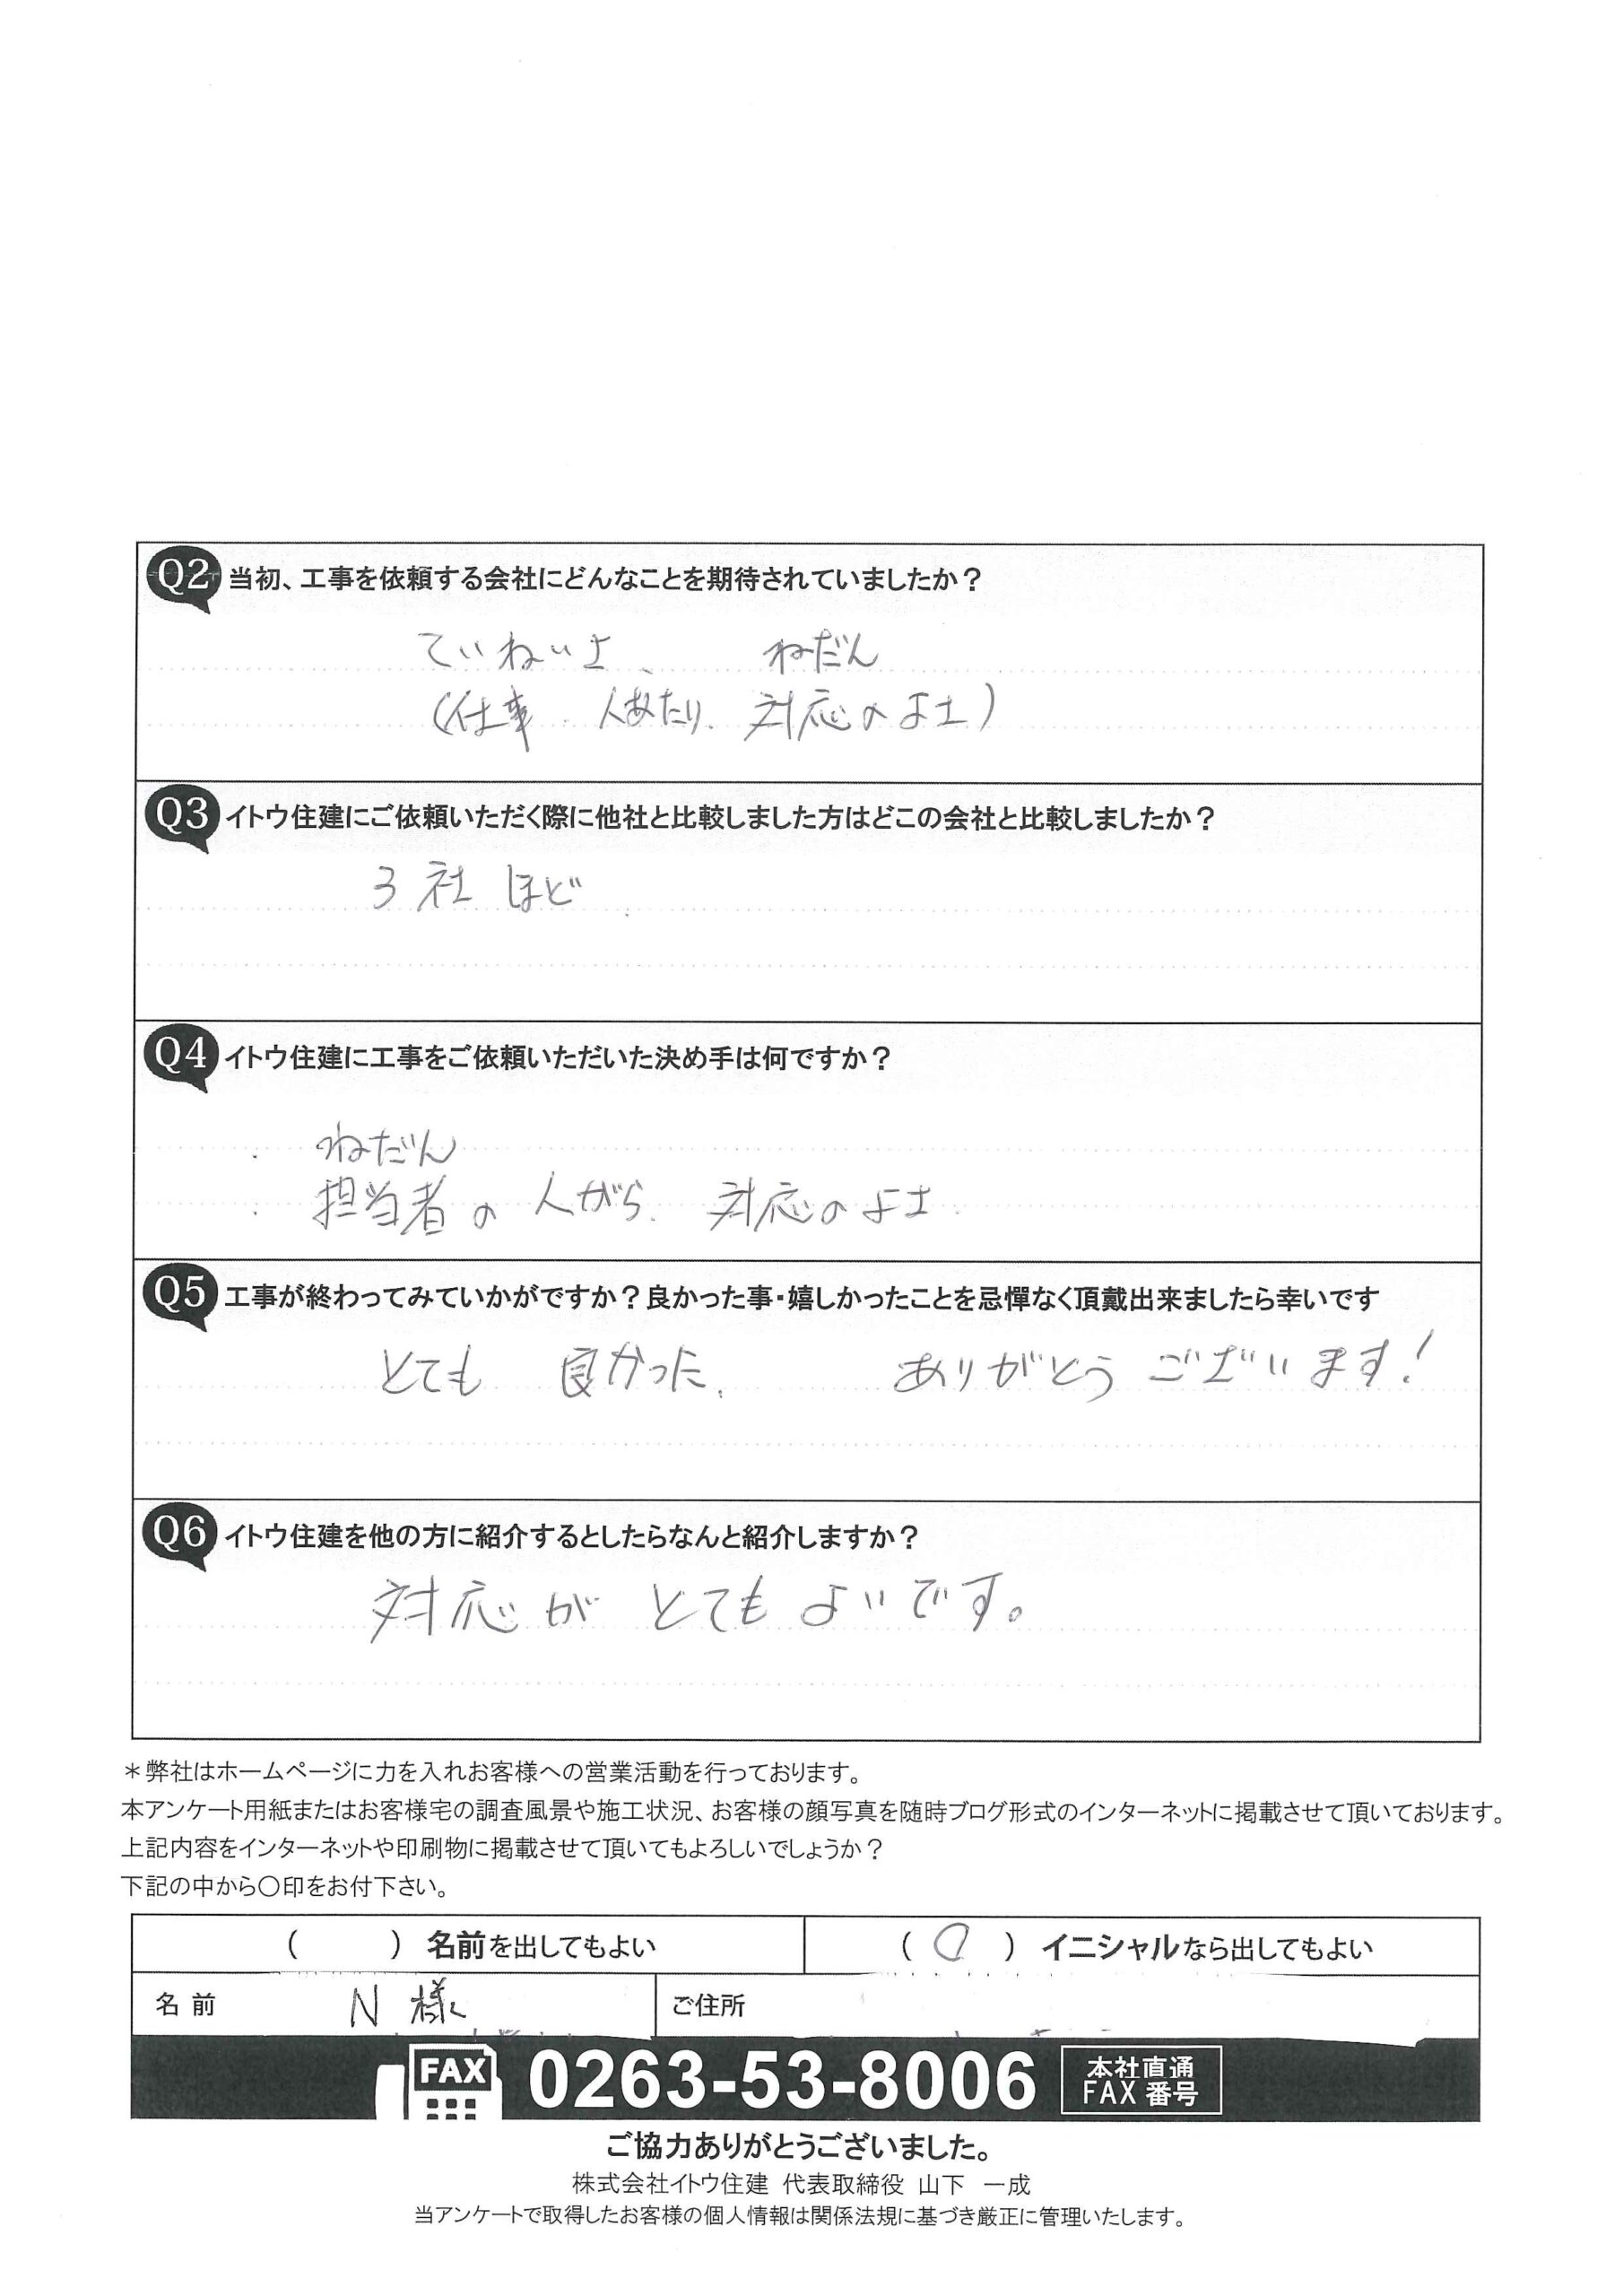 Q2 当初、工事を依頼する会社にどんなことを期待されていましたか？
ていねいさ、 ねだん
（仕事、人あたり、対応のよさ）
Q3 イトウ住建にご依頼いただく際に他社と比較しました方はどこの会社と比較しましたか？
3社ほど
Q4 イトウ住建に工事をご依頼いただいた決め手は何ですか？
・ねだん
・担当者の人がら、対応のよさ
Q5 工事が終わってみていかがですか？良かった事・嬉しかったことを忌憚なく頂戴出来ましたら幸いです
とても 良かった、 ありがとうございます！
Q6 イトウ住建を他の方に紹介するとしたらなんと紹介しますか？
対応が とてもよいです。
＊弊社はホームページに力を入れお客様への営業活動を行っております。
本アンケート用紙またはお客様宅の調査風景や施工状況、お客様の顔写真を随時ブログ形式のインターネットに掲載させて頂いております。
上記内容をインターネットや印刷物に掲載させて頂いてもよろしいでしょうか？
下記の中から〇印をお付下さい。
（　　）名前を出してもよい （〇）イニシャルなら出してもよい
名前 N様 ご住所
FAX 0263-53-8006 本社直通 FAX番号
ご協力ありがとうございました。
株式会社イトウ住建 代表取締役 山下 一成
当アンケートで取得したお客様の個人情報は関係法規に基づき厳正に管理いたします。